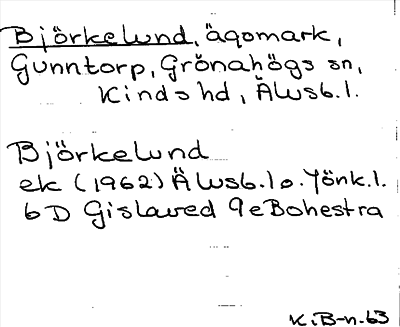 Björkelund, ägomark,
Gunntorp, Grönahögs sn,
Kinds hd, Älvsb.l.
Björkelund
ek (1962) Älvsb.l o. Jönk.l.
6D Gislaved 9e Bohestra
K.B-n.63